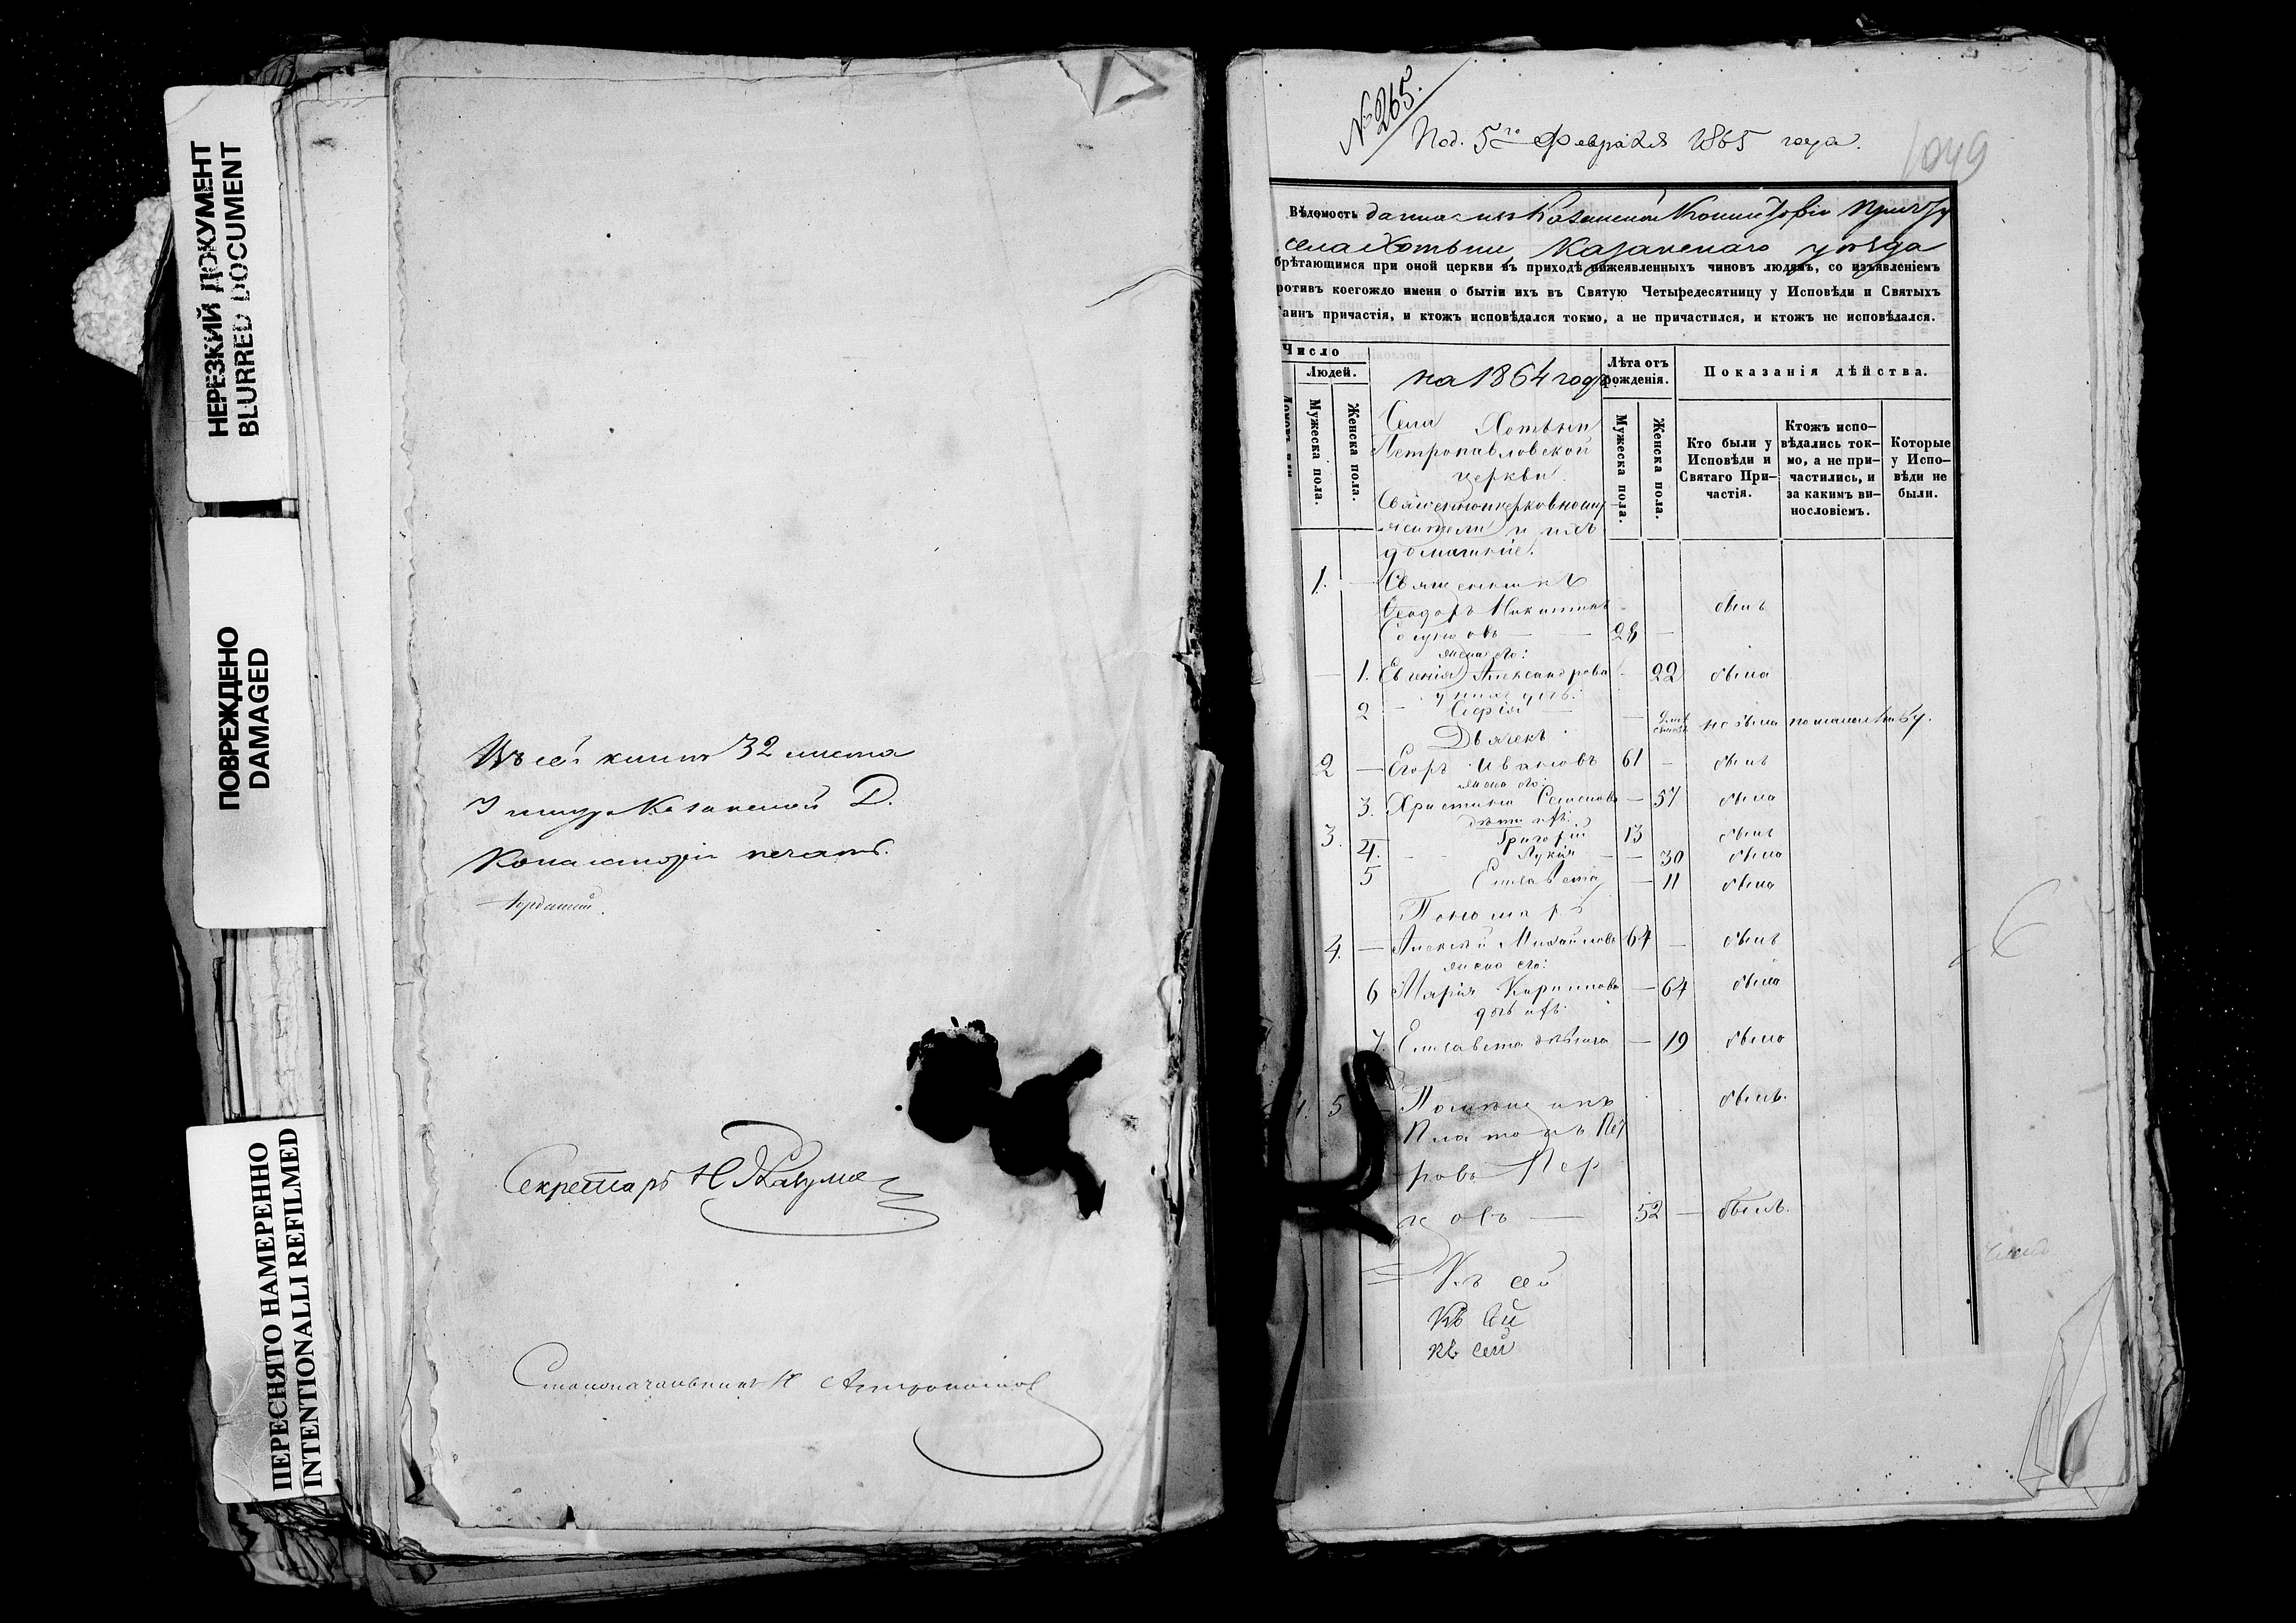 НЕРЕЗКИЙ ДОКУМЕНТ
BLURRED DOCUMENT
ПОВРЕЖДЕНО
DAMAGED
ПЕРЕСНЯТО НАМЕРЕННО
INTENTIONALLI REFILMED
Въ сей книгѣ 32 листа
Казанской Д.
Консисторіи печать.
Секретарь Н
Столоначальникъ Н
№ 265.
Под. 5го Февраля 1865 года.
1049
Вѣдомость данная изъ Казанской Консисторіи причту
села Хотьни, Казанскаго уѣзда
брѣтающимся при оной церкви въ приходѣ нижеявленныхъ чиновъ людямъ, со изъявленіемъ
ротивъ коегождо имени о бытіи ихъ въ Святую Четыредесятницу у Исповѣди и Святыхъ
аинъ причастія, и ктожъ исповѣдался токмо, а не причастился, и ктожъ не исповѣдался.
Число
Людей.
Мужеска пола.
Женска пола.
на 1864 годъ
Лѣта отъ рожденія.
Мужеска пола.
Женска пола.
Показанія дѣйства.
Кто были у Исповѣди и Святаго При-
частія.
Ктожъ испо-
вѣдались ток-
мо, а не при-
частились, и
за какимъ ви-
нословіемъ.
Которые
у Испо-
вѣди не
были.
Села Хотьни
Петропавловской
церкви
Священноцерковнослу
жители и ихъ
домашніе.
1. — Священникъ
Ѳеодоръ Никитинъ былъ
28 —
жена его:
— 1. Евгенія Александрова — 22 была
у нихъ дочь:
2 — Софія — не была по малолѣтству.
Дьячекъ
2 — Егоръ Ивановъ 61 — былъ
жена его:
3. Христина Семенова — 57 была
дѣти ихъ:
3. Григорій 13 былъ
4. Лукія — 30 была
5 Елисавета — 11 была
Пономарь
4. — Алексѣй Михайловъ 64 — былъ
жена его:
6 Марія Карпилова — 64 была
дочь ихъ:
7. Елисавета дѣвица — 19 была
5 Помѣщикъ былъ.
Платонъ Пет
ровъ Пер
цовъ — 52 — былъ.
Къ сей
Къ сей
къ сей
6